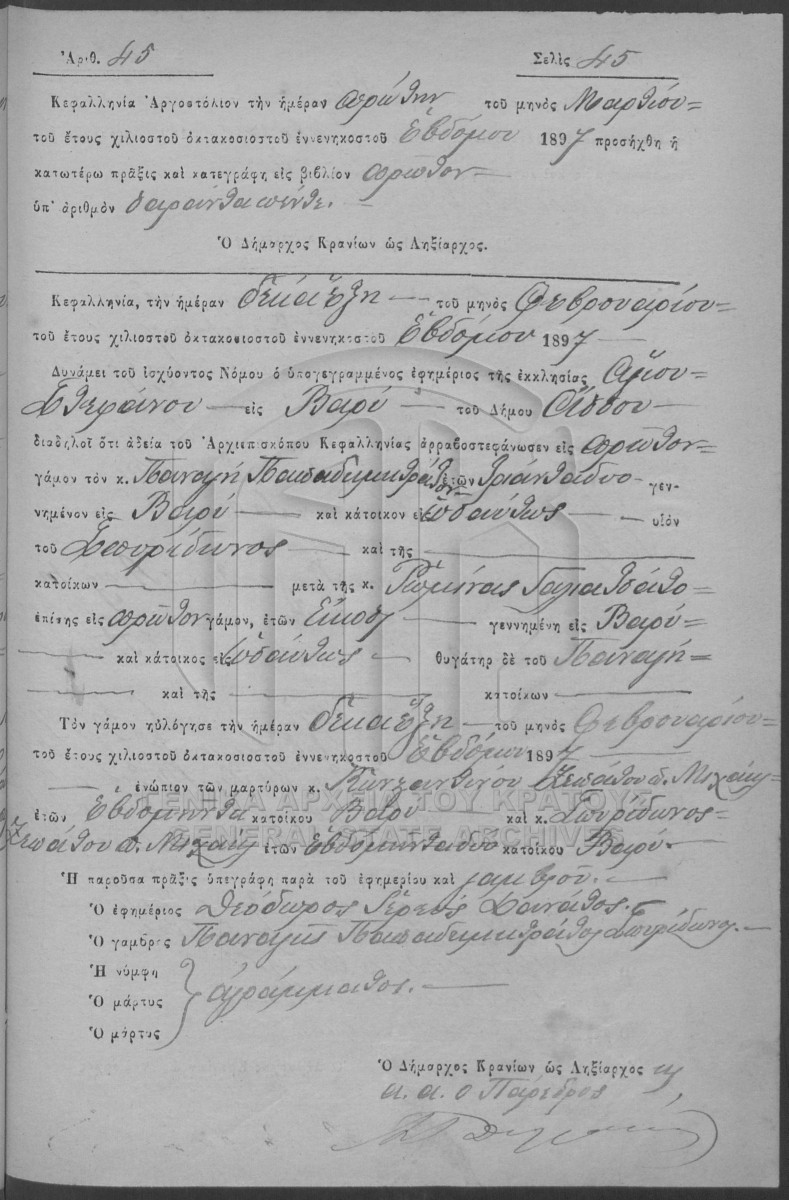 Ἀριθ. 45 Σελὶς 45
Κεφαλληνία Ἀργοστόλιον τὴν ἡμέραν πρώτην τοῦ μηνὸς Μαρτίου
τοῦ ἔτους χιλιοστοῦ ὀκτακοσιοστοῦ ἐννενηκοστοῦ Ἑβδόμου 1897 προσήχθη ἡ
κατωτέρω πρᾶξις καὶ κατεγράφη εἰς βιβλίον πρῶτον
ὑπ' ἀριθμὸν σαράντα πέντε.
Ὁ Δήμαρχος Κρανίων ὡς Ληξίαρχος.
Κεφαλληνία, τὴν ἡμέραν δέκα ἕξη τοῦ μηνὸς Φεβρουαρίου
τοῦ ἔτους χιλιοστοῦ ὀκτακοσιοστοῦ ἐννενηκοστοῦ Ἑβδόμου 1897
Δυνάμει τοῦ ἰσχύοντος Νόμου ὁ ὑπογεγραμμένος ἐφημέριος τῆς ἐκκλησίας Ἁγίου
Στεφάνου εἰς Βαρύ τοῦ Δήμου
διαδηλοῖ ὅτι ἀδείᾳ τοῦ Ἀρχιεπισκόπου Κεφαλληνίας ἀρραβοστεφάνωσεν εἰς πρῶτον
γάμον τὸν κ. Παναγῆ Παπαδημητράτον ἐτῶν τριάντα δυο γεν-
νημένον εἰς Βαρύ καὶ κάτοικον εἰς ὡσαύτως υἱὸν
τοῦ Σπυρίδωνος καὶ τῆς
κατοίκων μετὰ τῆς κ. Γαλιατσάτο
ἐπίσης εἰς πρῶτον γάμον, ἐτῶν Εἴκοσι γεννημένη εἰς Βαρύ
καὶ κάτοικος εἰς ὡσαύτως θυγάτηρ δὲ τοῦ Παναγῆ
καὶ τῆς κατοίκων
Τὸν γάμον ηὐλόγησε τὴν ἡμέραν δέκα ἕξη τοῦ μηνὸς Φεβρουαρίου
τοῦ ἔτους χιλιοστοῦ ὀκτακοσιοστοῦ ἐννενηκοστοῦ Ἑβδόμου 1897
ἐνώπιον τῶν μαρτύρων κ. Κωνσταντίνου
ἐτῶν Ἑβδομῆντα κατοίκου Βαρύ καὶ κ. Σπυρίδωνος
ἐτῶν Ἑβδομῆντα δυο κατοίκου Βαρύ.
Ἡ παροῦσα πρᾶξις ὑπεγράφη παρὰ τοῦ ἐφημερίου καὶ γαμβροῦ.
Ὁ ἐφημέριος Θεόδωρος Ἱερεὺς
Ὁ γαμβρὸς Παναγῆς Παπαδημητράτος Σπυρίδωνος.
Ἡ νύμφη
Ὁ μάρτυς ἀγράμματος.
Ὁ μάρτυς
Ὁ Δήμαρχος Κρανίων ὡς Ληξίαρχος
α. α. ο Πάρεδρος
ΓΕΝΙΚΑ ΑΡΧΕΙΑ ΤΟΥ ΚΡΑΤΟΥΣ
GENERAL STATE ARCHIVES